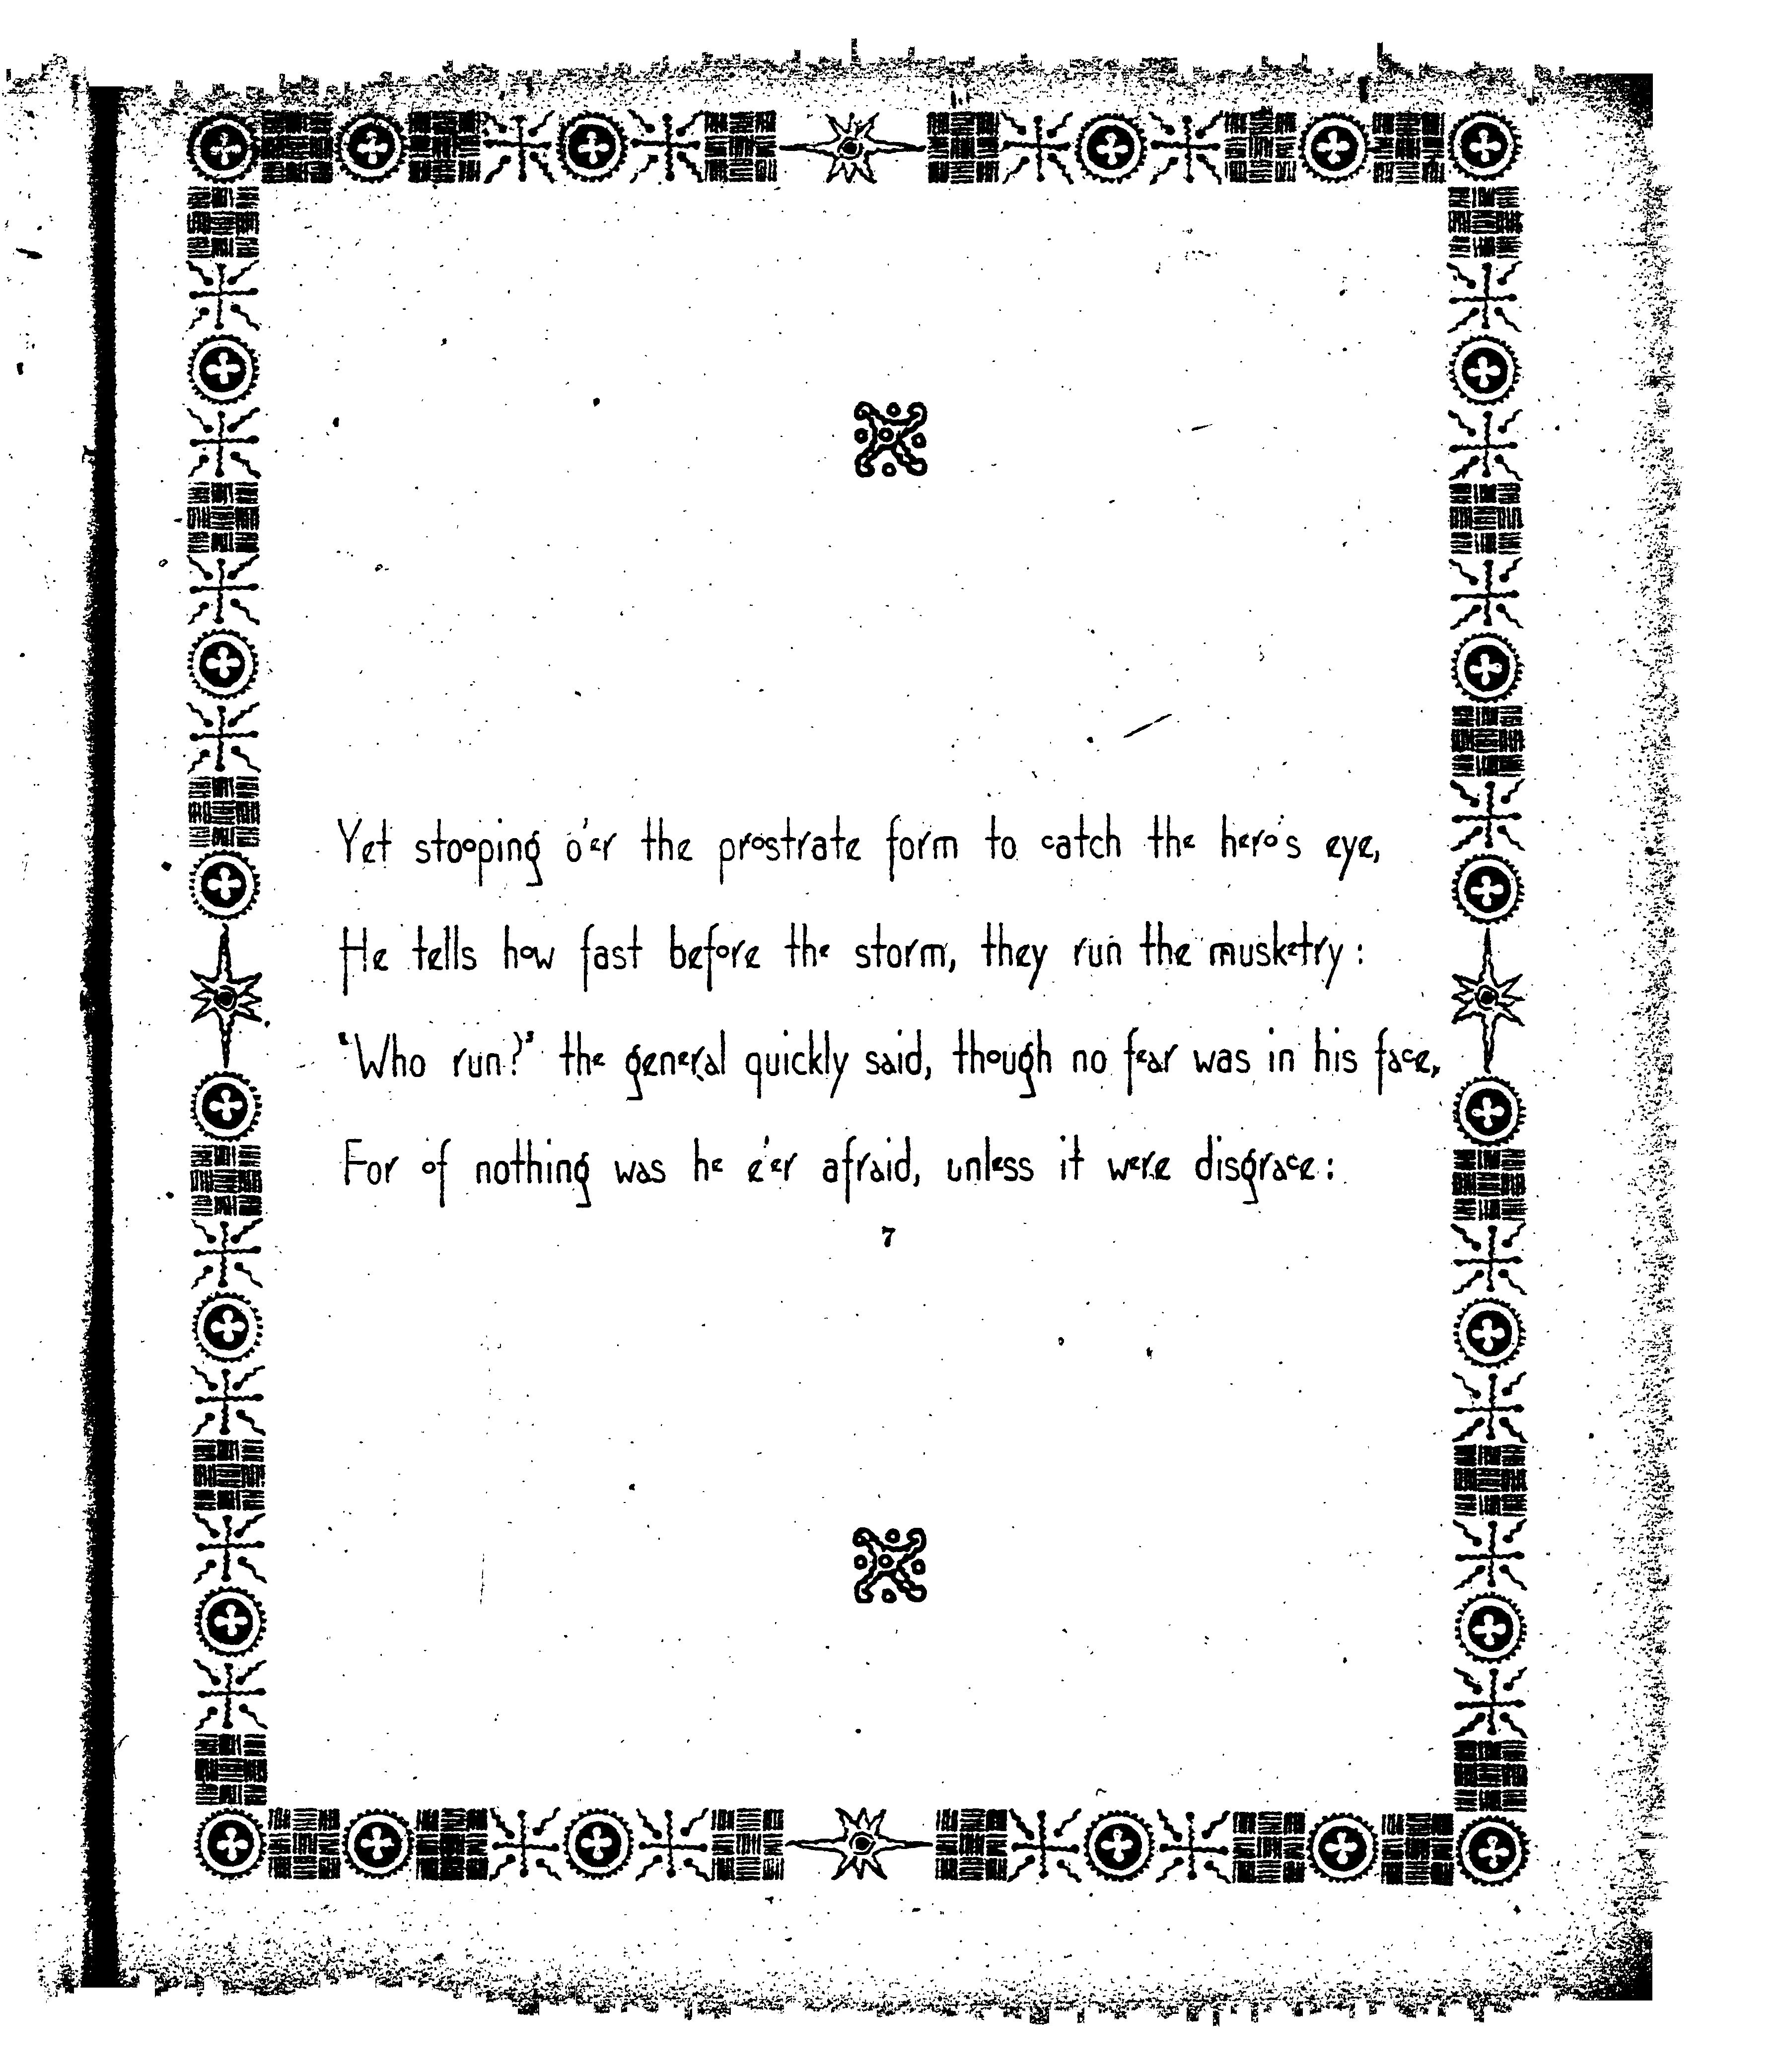 Yet stooping o'er the prostrate form to catch the hero's eye,
He tells how fast before the storm, they run the musketry:
"Who run?" the general quickly said, though no fear was in his face,
For of nothing was he e'er afraid, unless it were disgrace:
7